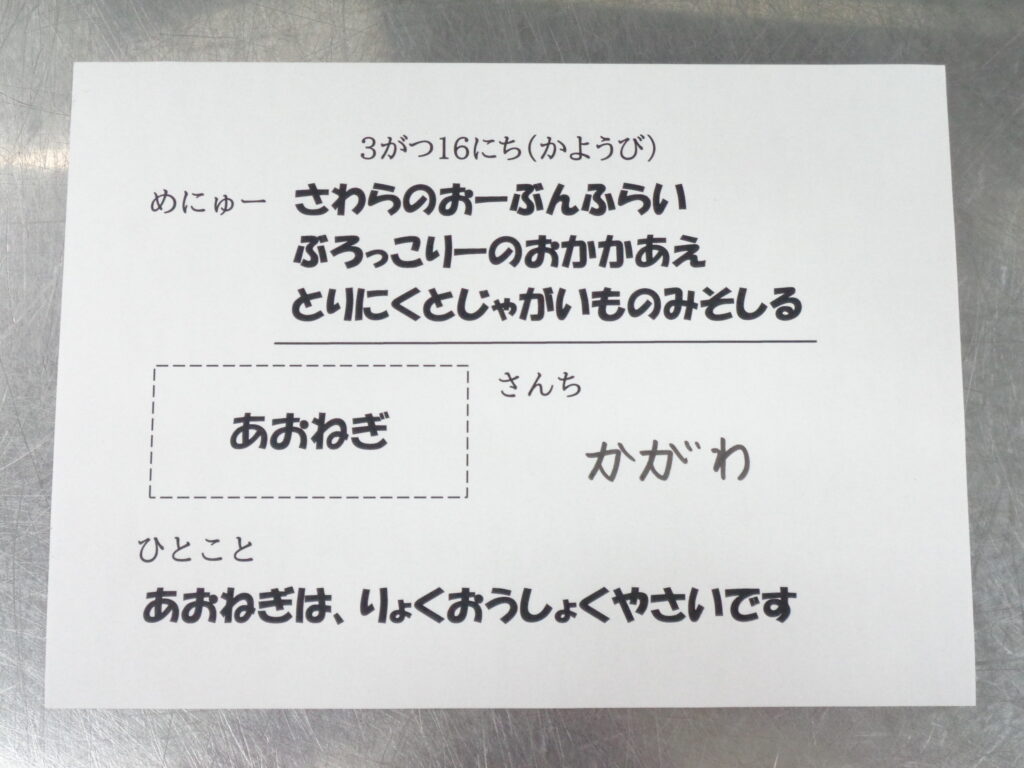 3がつ16にち(かようび)
めにゅー さわらのおーぶんふらい
ぶろっこりーのおかかあえ
とりにくとじゃがいものみそしる
あおねぎ
さんち
かがわ
ひとこと
あおねぎは、りょくおうしょくやさいです